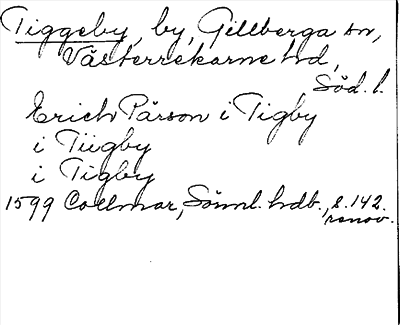 Tiggeby, by, Gillberga sn,
Västerrekarne hd,
Söd. l.
Erich Pärson i Tigby
i Tiigby
i Tigby
1599 Collmar, Sönnl. hdb., s. 142.
renov.